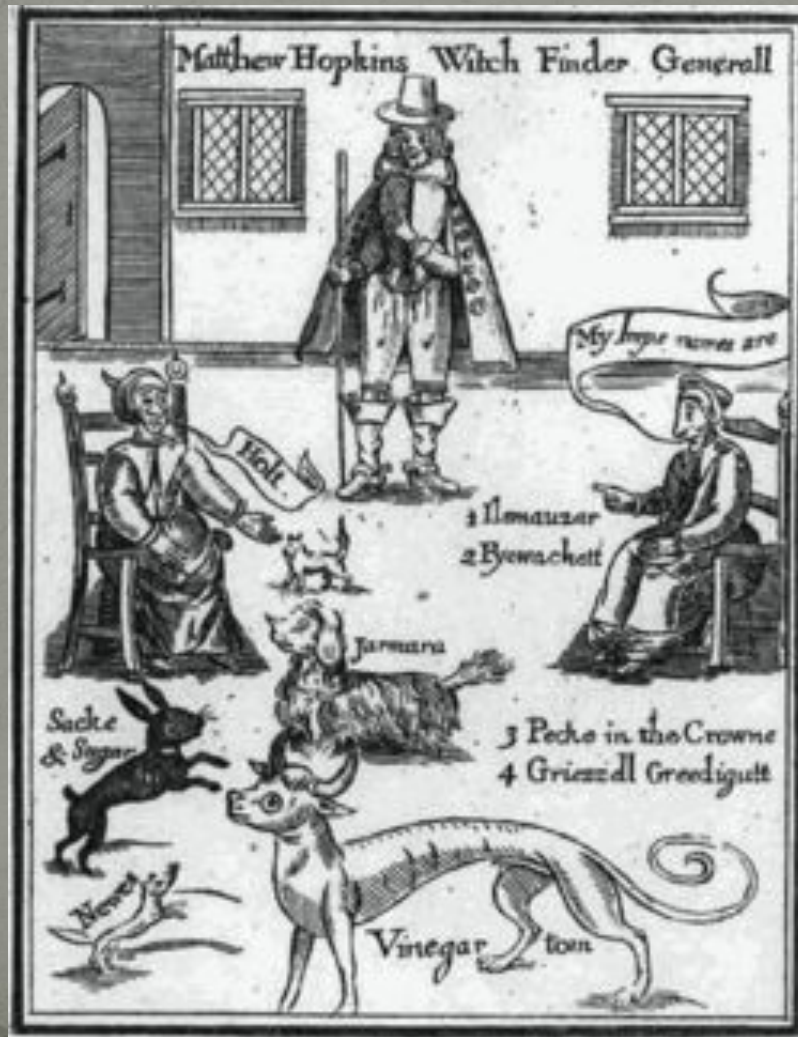 Matthew Hopkins Witch Finder Generall
My Impe names are
Holt.
1 Ilemauzar
2 Pyewackett
Jarmara
Sacke
& Sugar
3 Pecke in the Crowne
4 Griezzell Greedigutt
Newes
Vinegar tom